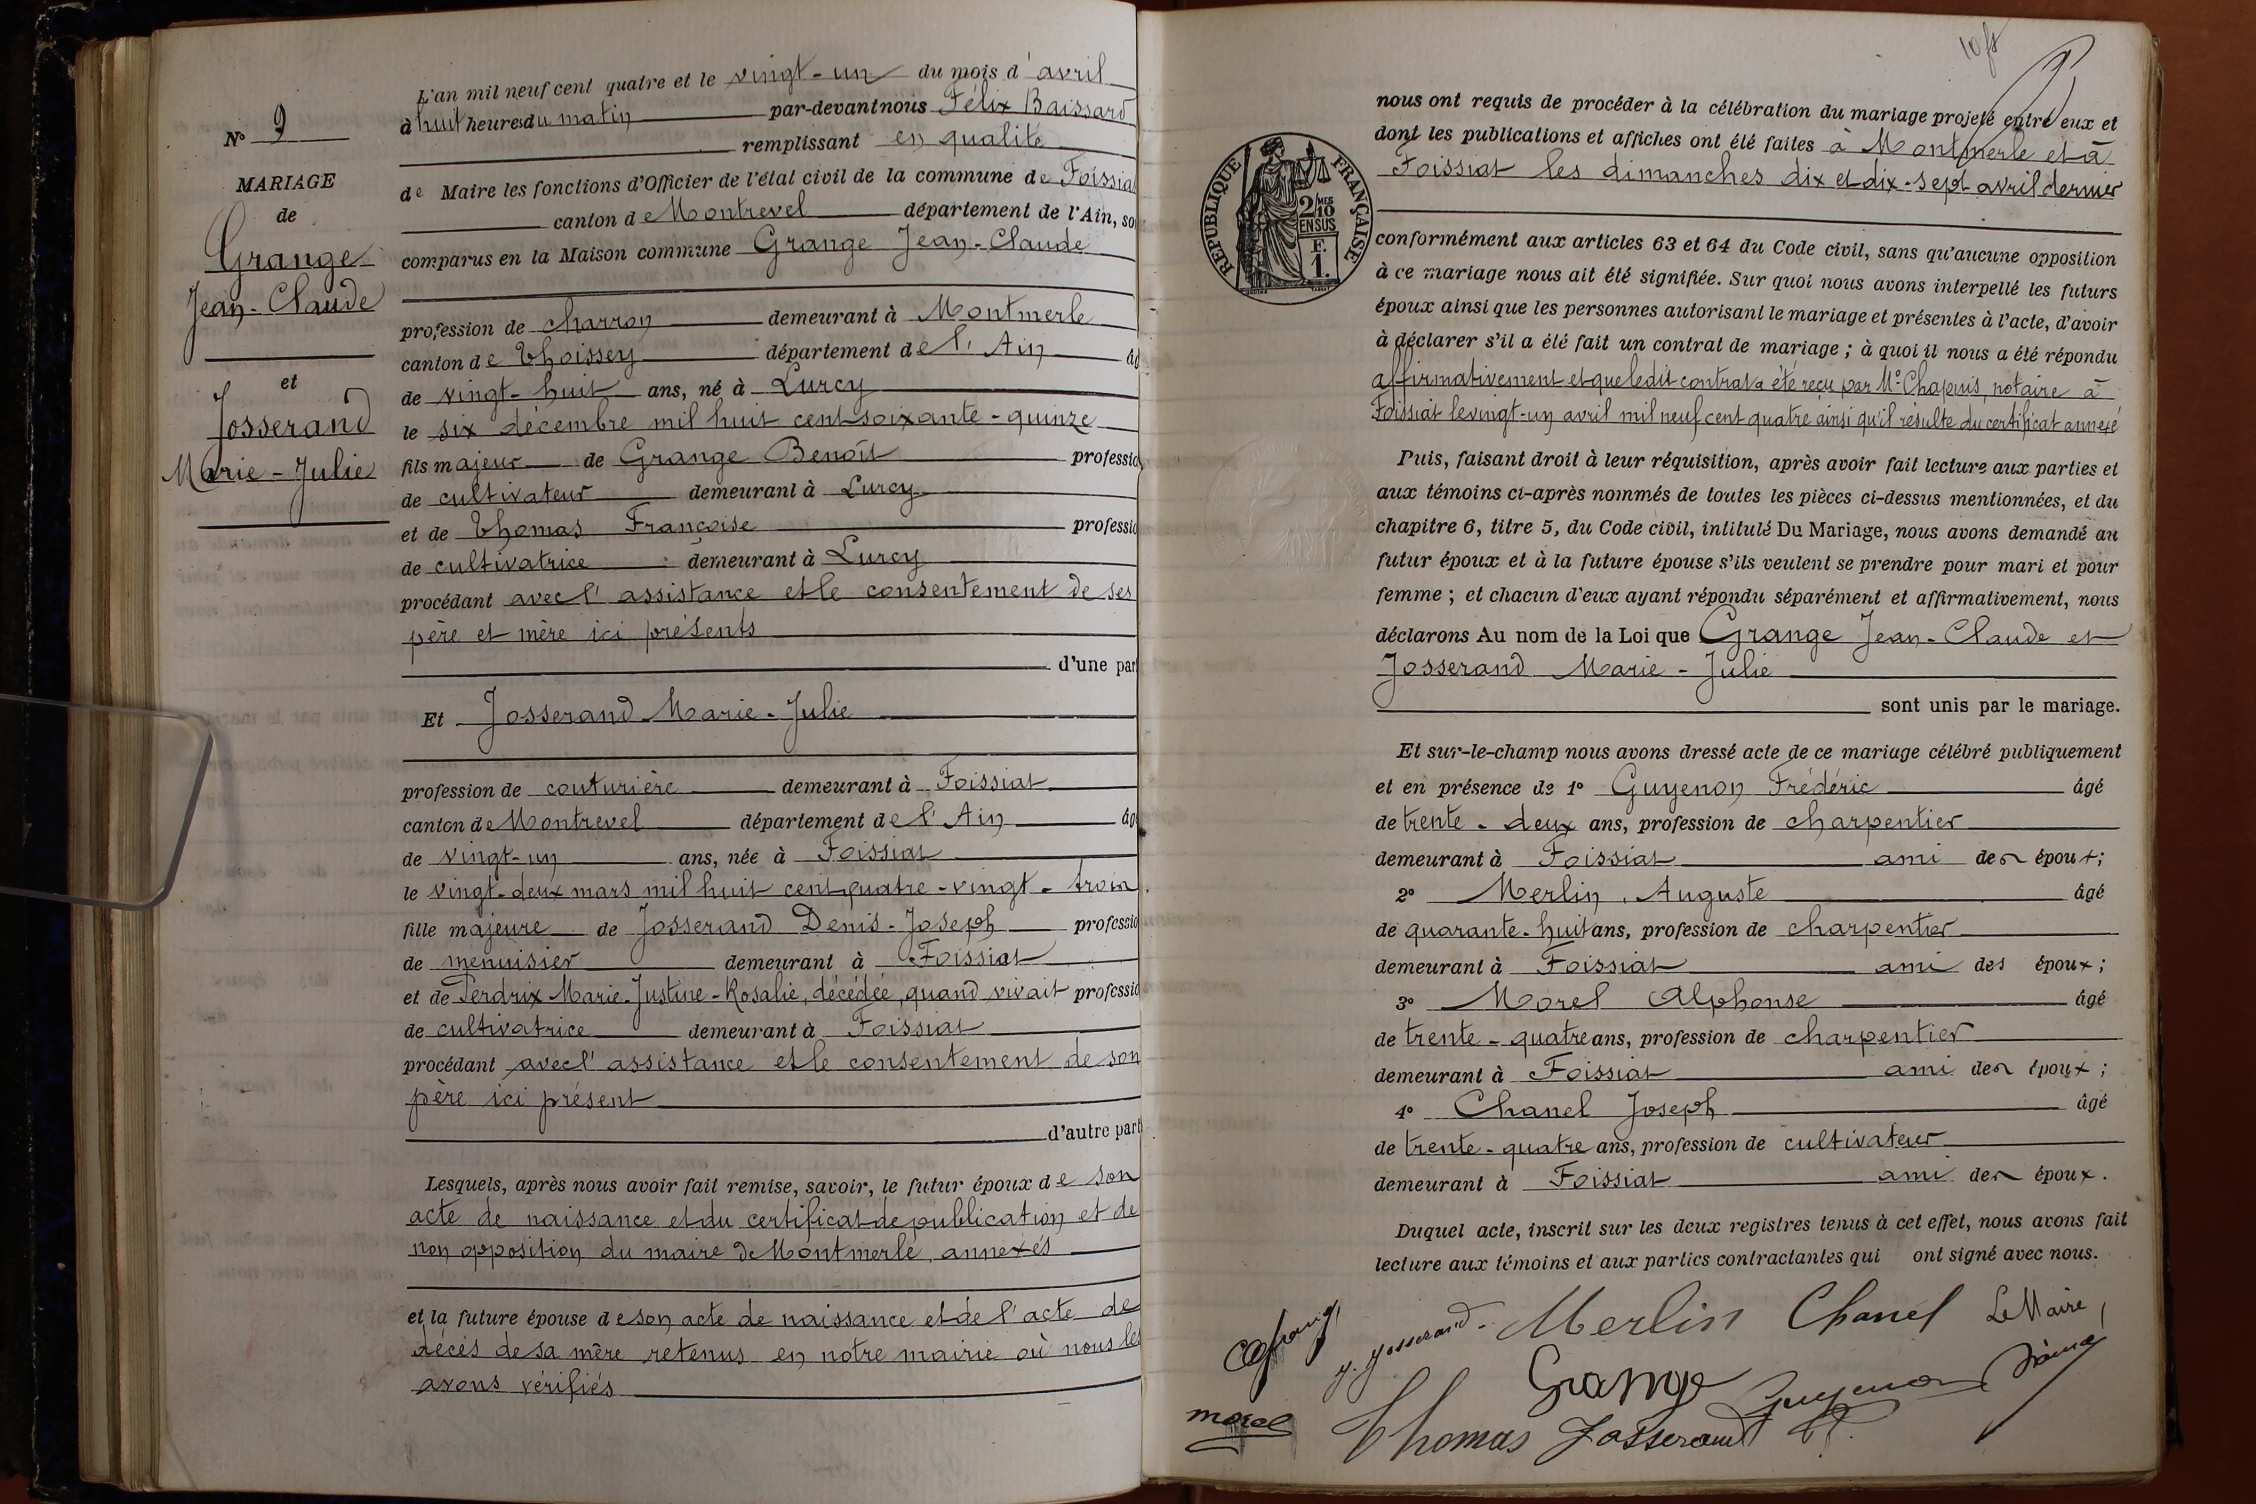 L'an mil neuf cent quatre et le vingt-un du mois d'avril
à huit heures du matin par-devant nous Félix Baissard
remplissant en qualité
de Maire les fonctions d'Officier de l'état civil de la commune de Foissiat
canton de Montrevel département de l'Ain, so
comparus en la Maison commune Grange Jean-Claude
profession de charron demeurant à Montmerle
canton de Thoissey département de l'Ain âg
de vingt-huit ans, né à Lurcy
le six décembre mil huit cent soixante-quinze
fils majeur de Grange Benoît professio
de cultivateur demeurant à Lurcy
et de Thomas Françoise professio
de cultivatrice demeurant à Lurcy
procédant avec l'assistance et le consentement de ses
père et mère ici présents
d'une part
Et Josserand Marie-Julie
profession de couturière demeurant à Foissiat
canton de Montrevel département de l'Ain âg
de vingt-un ans, née à Foissiat
le vingt-deux mars mil huit cent quatre-vingt-trois
fille majeure de Josserand Denis-Joseph professio
de menuisier demeurant à Foissiat
et de Perdrix Marie-Justine-Rosalie, décédée, quand vivait professio
de cultivatrice demeurant à Foissiat
procédant avec l'assistance et le consentement de son
père ici présent
d'autre part
Lesquels, après nous avoir fait remise, savoir, le futur époux de son
acte de naissance et du certificat de publication et de
non opposition du maire de Montmerle, annexés
et la future épouse de son acte de naissance et de l'acte de
décés de sa mère retenus en notre mairie où nous les
avons vérifiés
N° 9
MARIAGE
de
Grange
Jean-Claude
et
Josserand
Marie-Julie
nous ont requis de procéder à la célébration du mariage projeté entre eux et
dont les publications et affiches ont été faites à Montmerle et à
Foissiat les dimanches dix et dix-sept avril dernier
RÉPUBLIQUE FRANÇAISE
2/10 MES
EN SUS
F.
1.
conformément aux articles 63 et 64 du Code civil, sans qu'aucune opposition
à ce mariage nous ait été signifiée. Sur quoi nous avons interpellé les futurs
époux ainsi que les personnes autorisant le mariage et présentes à l'acte, d'avoir
à déclarer s'il a été fait un contrat de mariage ; à quoi il nous a été répondu
affirmativement et que ledit contrat a été reçu par Me Chapuis, notaire à
Foissiat le vingt-un avril mil neuf cent quatre ainsi qu'il résulte du certificat annexé
Puis, faisant droit à leur réquisition, après avoir fait lecture aux parties et
aux témoins ci-après nommés de toutes les pièces ci-dessus mentionnées, et du
chapitre 6, titre 5, du Code civil, intitulé Du Mariage, nous avons demandé au
futur époux et à la future épouse s'ils veulent se prendre pour mari et pour
femme ; et chacun d'eux ayant répondu séparément et affirmativement, nous
déclarons Au nom de la Loi que Grange Jean-Claude et
Josserand Marie-Julie
sont unis par le mariage.
Et sur-le-champ nous avons dressé acte de ce mariage célébré publiquement
et en présence de 1° Guyenon Frédéric âgé
de trente-deux ans, profession de charpentier
demeurant à Foissiat ami des époux ;
2° Merlin Auguste âgé
de quarante-huit ans, profession de charpentier
demeurant à Foissiat ami des époux ;
3° Morel Alphonse âgé
de trente-quatre ans, profession de charpentier
demeurant à Foissiat ami des époux ;
4° Chanel Joseph âgé
de trente-quatre ans, profession de cultivateur
demeurant à Foissiat ami des époux.
Duquel acte, inscrit sur les deux registres tenus à cet effet, nous avons fait
lecture aux témoins et aux parties contractantes qui ont signé avec nous.
J. Josserand Merlin Chanel Le Maire,
Grange Guyenon
morel Thomas Josserand